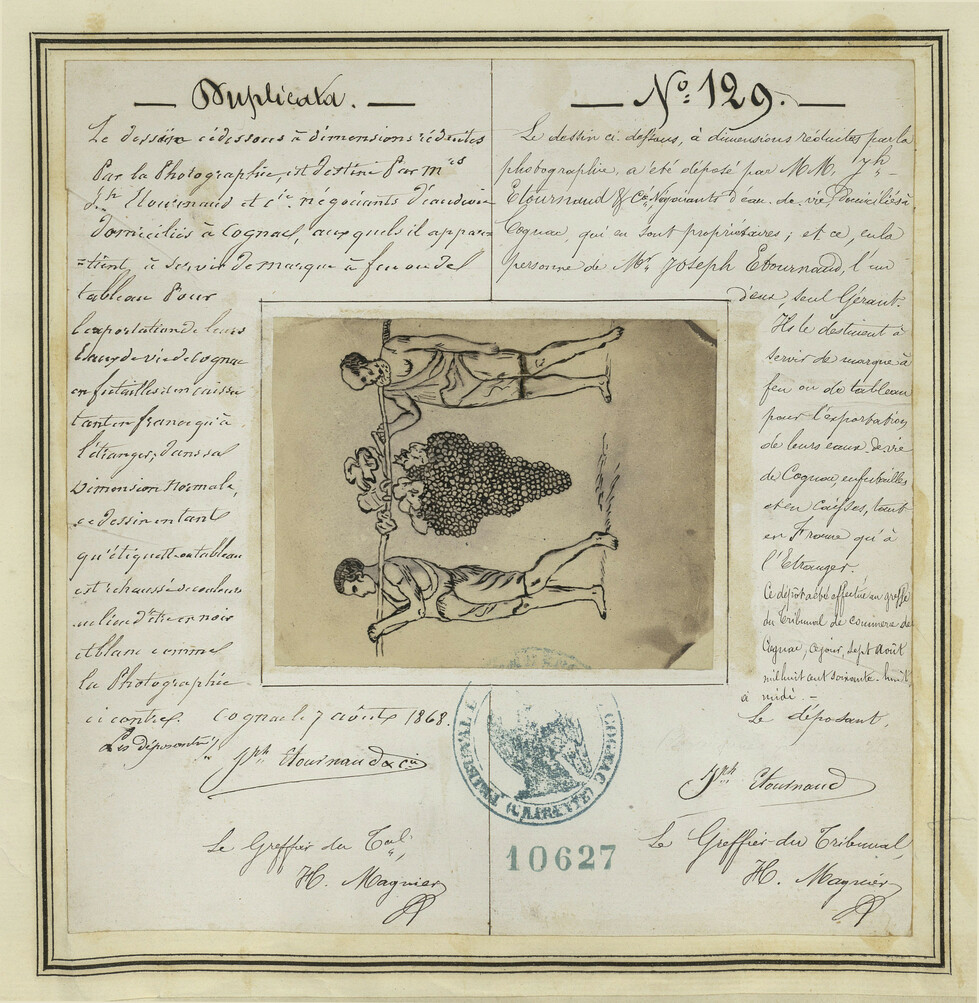 Duplicata.
Le dessin cidessous à dimensions réduites
Par la Photographie, est destiné Par mrs
Jph Etournaud et cie négociants d'eaudevie
Domiciliés à Cognac, auxquels il appar=
=tient, à servir de marque à feu ou de
tableau Pour
l'exportation de leurs
Eaux de vie de Cognac
en futailles et en caisses
tant en france qu'à
l'étranger; dans sa
Dimension Normale,
ce dessin en tant
qu'étiquette ou tableau
est rehaussé de couleurs
au lieu d'être en noir
et blanc comme
la Photographie
ci contre. Cognac le 7 août 1868.
Les déposants,
Jph Etournaud & cie
Le Greffier du Tbal,
H. Magnier
No: 129.
Le dessin ci dessous, à dimensions réduites par la
photographie, a été déposé par M.M. Jph
Etournaud & Cie Négociants d'eau-de-vie, Domiciliés à
Cognac, qui en sont propriétaires; et ce, en la
personne de Mr Joseph Etournaud, l'un
d'eux seul Gérant.
Ils le destinent à
servir de marque à
feu ou de tableau
pour l'exportation
de leurs eaux-de-vie
de Cognac, en futailles
et en caisses, tant
en France qu'à
l'Etranger.
Ce dépôt a été effectué au greffe
du Tribunal de commerce de
Cognac, ce jour, sept Août
mil huit cent soixante-huit,
à midi.-
Le déposant,
Jph Etournaud
Le Greffier du Tribunal,
H. Magnier
TRIBUNAL COGNAC (CHARENTE)
10627